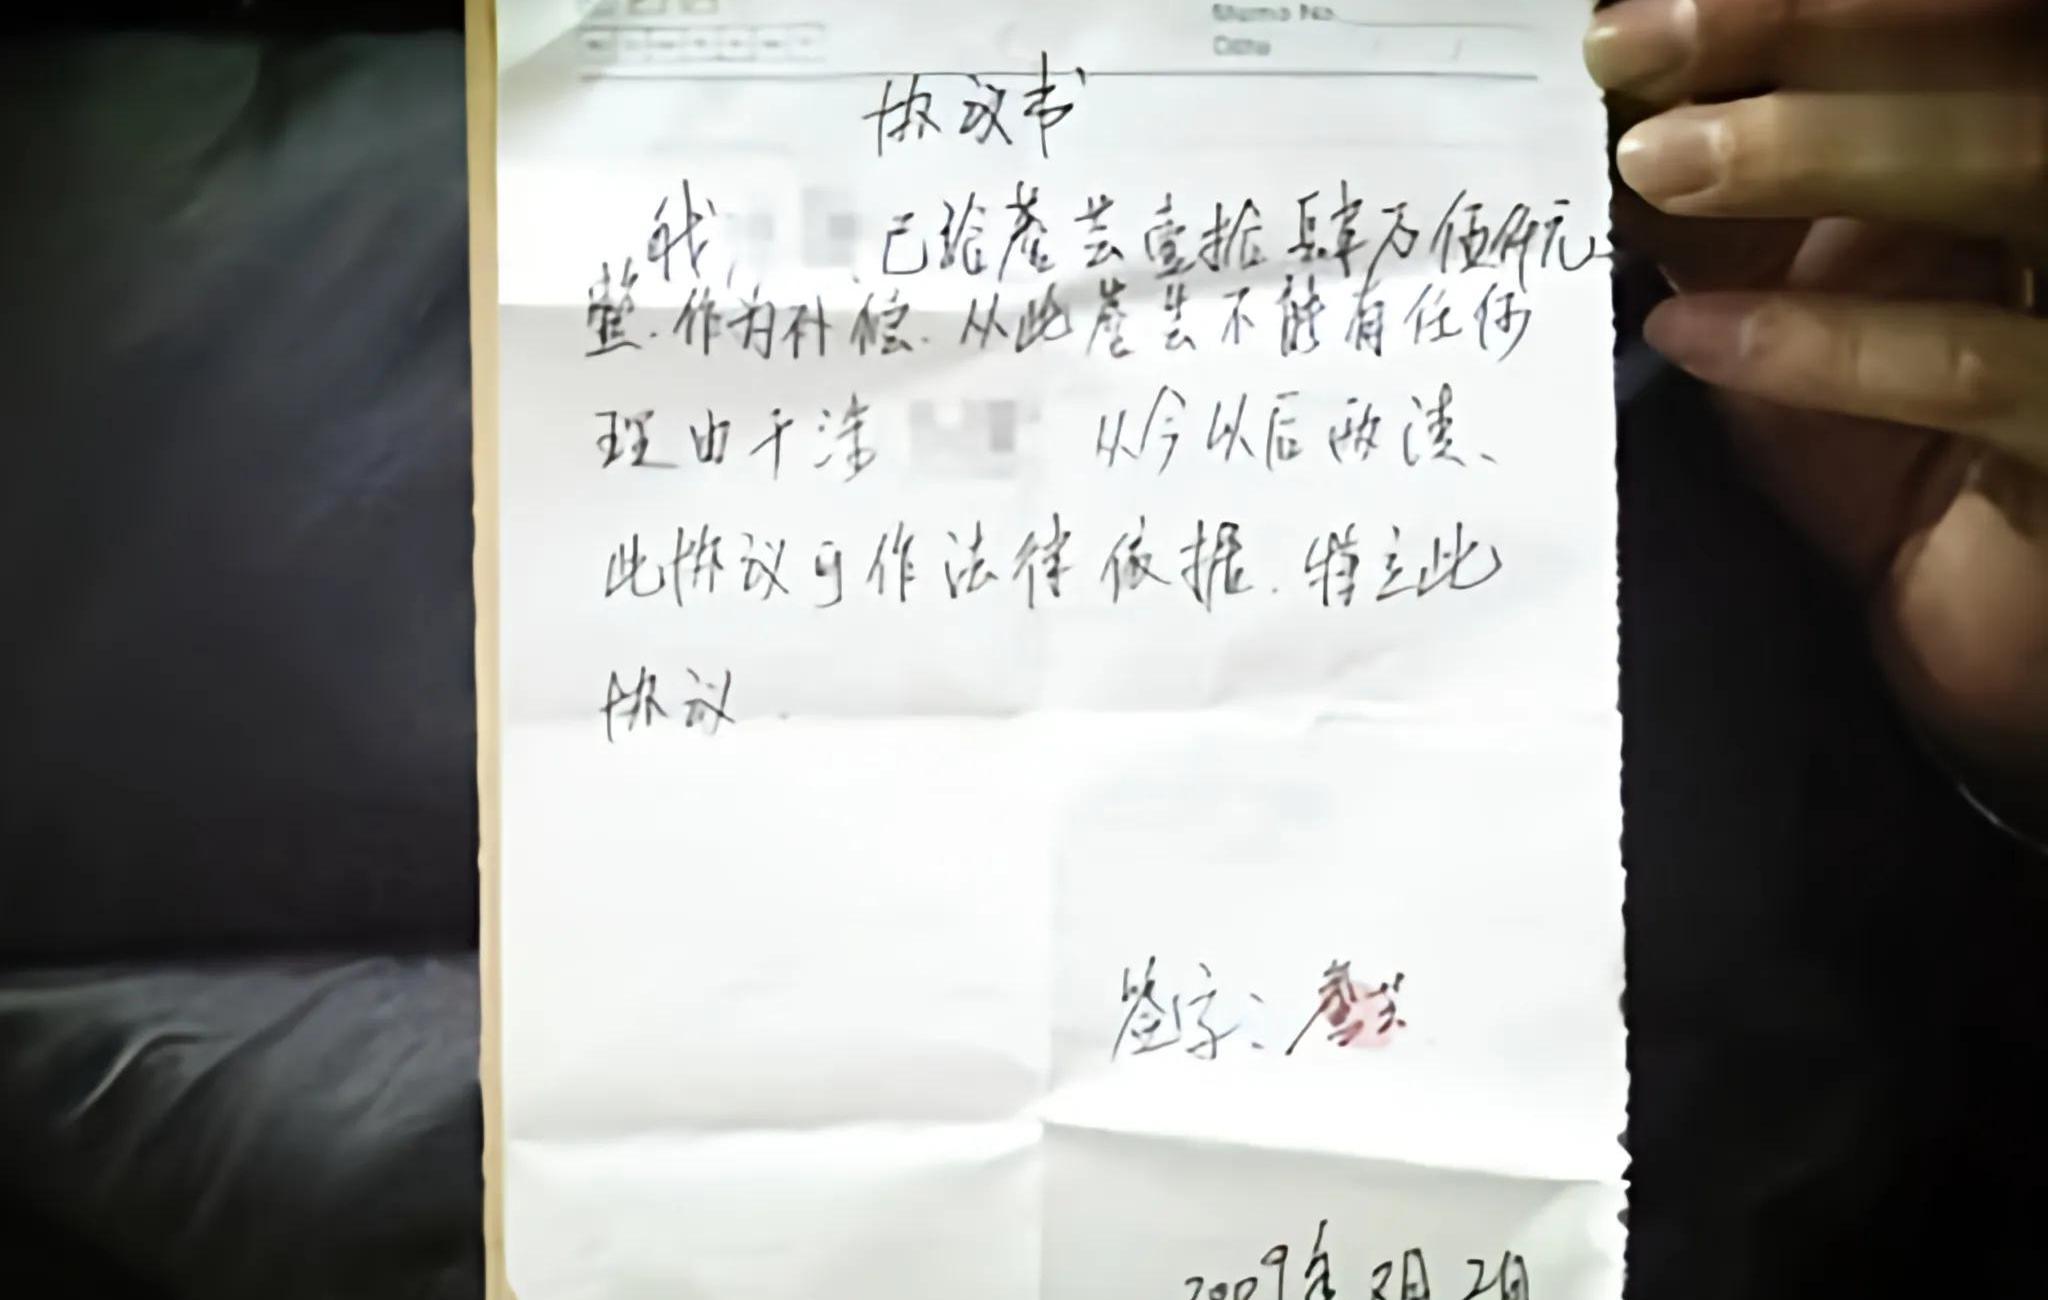 Memo No.
Date / /
协议书
我 已给蔡芸壹拾肆万伍仟元
整.作为补偿.从此蔡芸不能有任何
理由干涉 从今以后两清、
此协议可作法律依据.特立此
协议.
签字:蔡芸
2009年2月2日